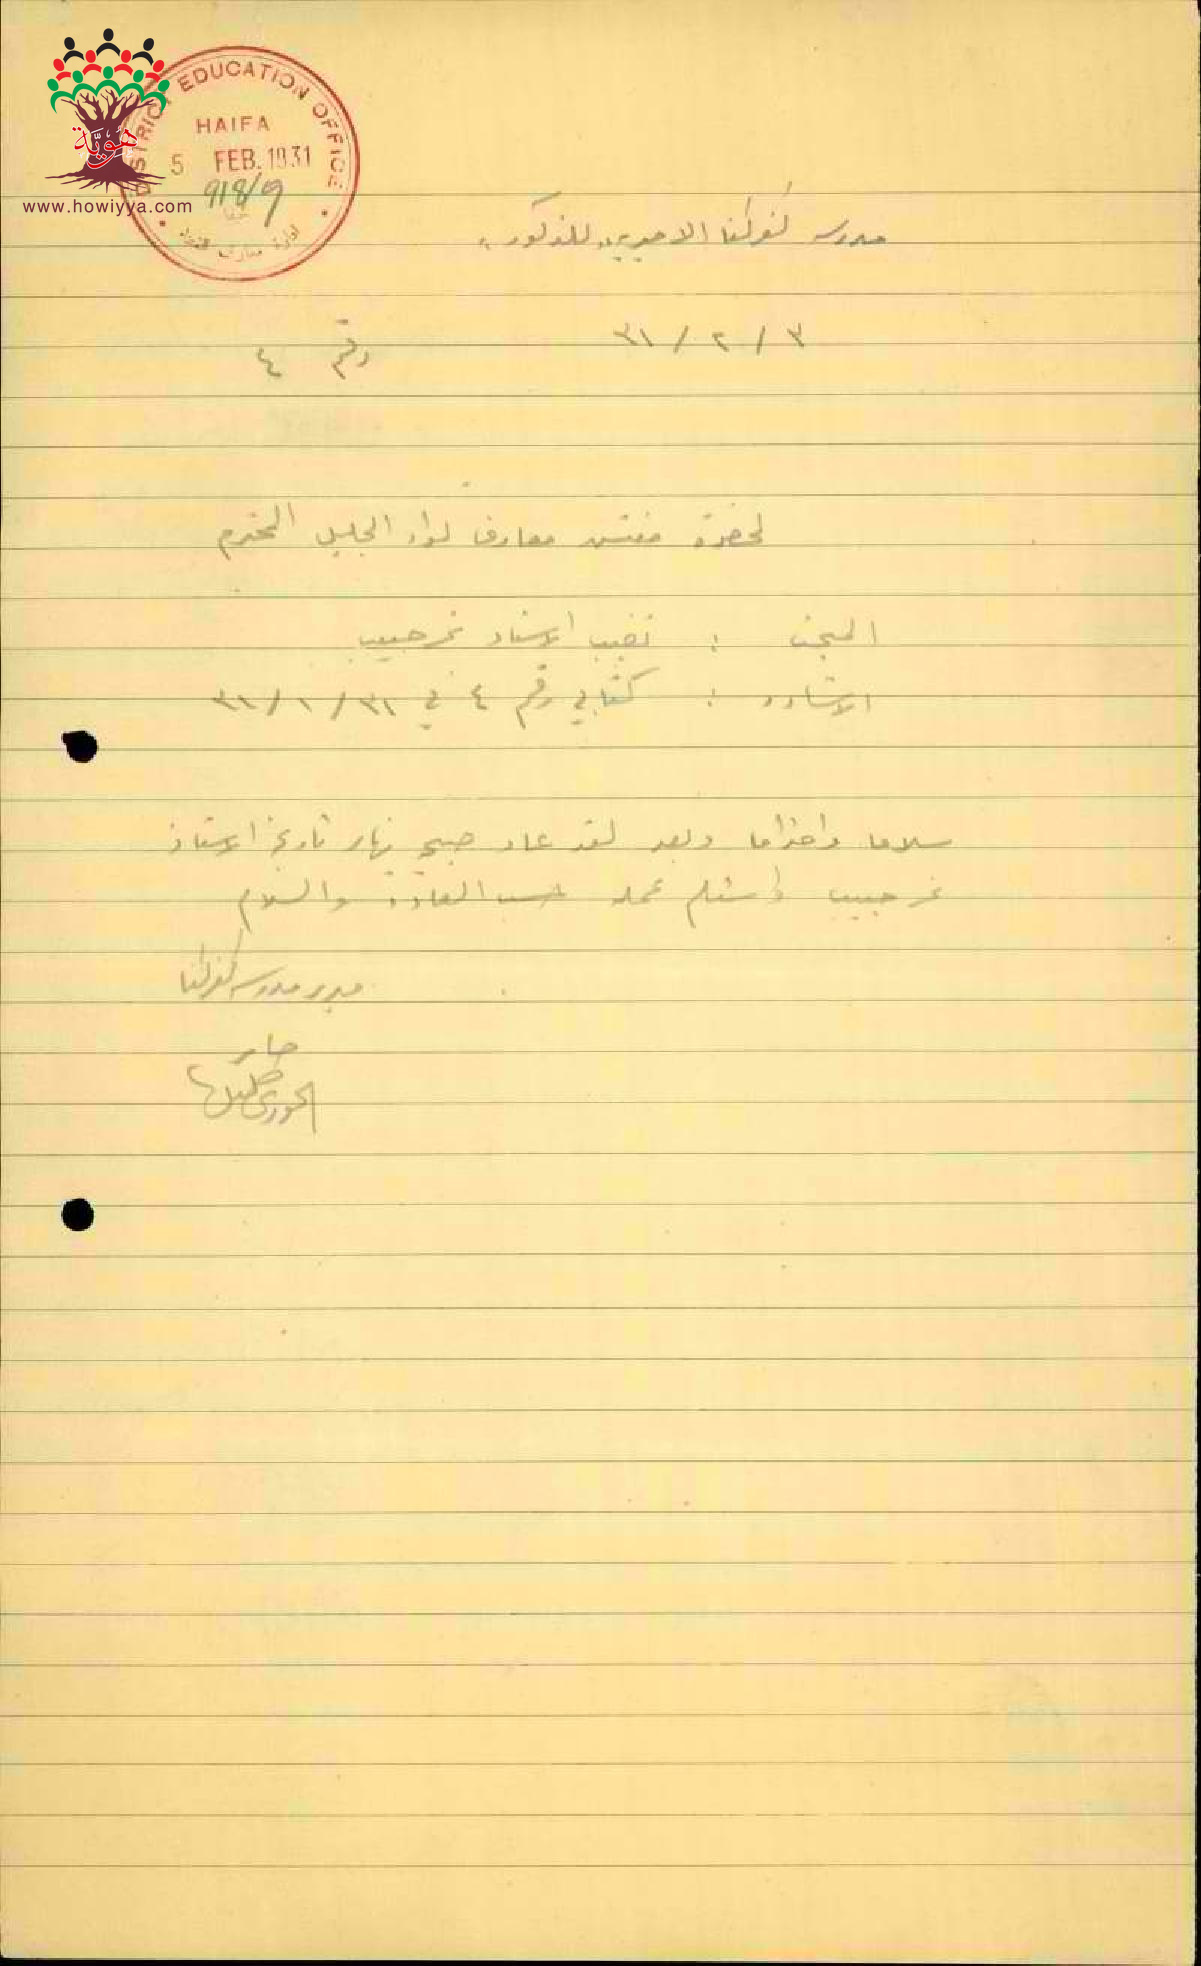 هوية
www.howiyya.com
DISTRICT EDUCATION OFFICE
HAIFA
5 FEB. 1931
918/9
حيفا
ادارة معارف
مدرسة كفركنا الاميرية للذكور
٣ / ٢ / ٣١
رقم ٤
لحضرة مفتش معارف لواء الجليل المحترم
المبحث : تغيب الاستاذ نمر حبيب
الاشارة : كتابي رقم ٤ في ٣١/١/٣١
سلاما واحتراما وبعد لقد عاد صبح نهار تاريخه الاستاذ
نمر حبيب واستلم عمله حسب العادة والسلام
مدير مدرسة كفركنا
الخوري خليل